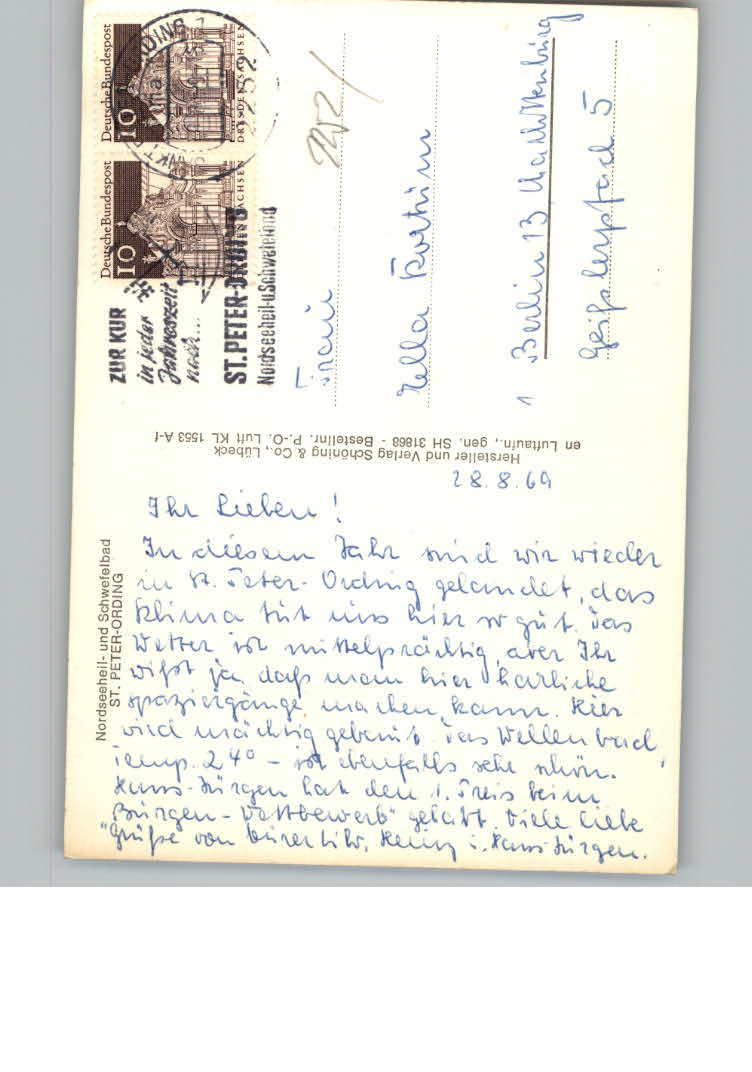 Deutsche Bundespost
10
DRESDEN SACHSEN
Deutsche Bundespost
10
SACHSEN
ZUR KUR
in jeder
Jahreszeit
nach...
ST. PETER-ORDING
Nordseeheil-u.Schwefelbad
Frau
Berlin 13 Charlottenburg
Geißlerpfad 5
Hersteller und Verlag Schöning & Co., Lübeck
en Luftaufn., gen. SH 31868 - Bestellnr. P.-O. Luft KL 1553 A-f
Nordseeheil- und Schwefelbad
ST. PETER-ORDING
28.8.69
Ihr Lieben!
In diesem Jahr sind wir wieder
in St. Peter-Ording gelandet, das
Klima tut uns hier so gut. Das
Wetter ist mittelprächtig, aber Ihr
wißt ja, daß man hier herrliche
Spaziergänge machen kann. Hier
wird mächtig gebaut. Das Wellenbad,
Temp. 24° - ist ebenfalls sehr schön.
Hans-Jürgen hat den 1. Preis beim
"Burgen-Wettbewerb" gehabt. Viele liebe
Grüße von Eurer Heinz u. Hans-Jürgen.